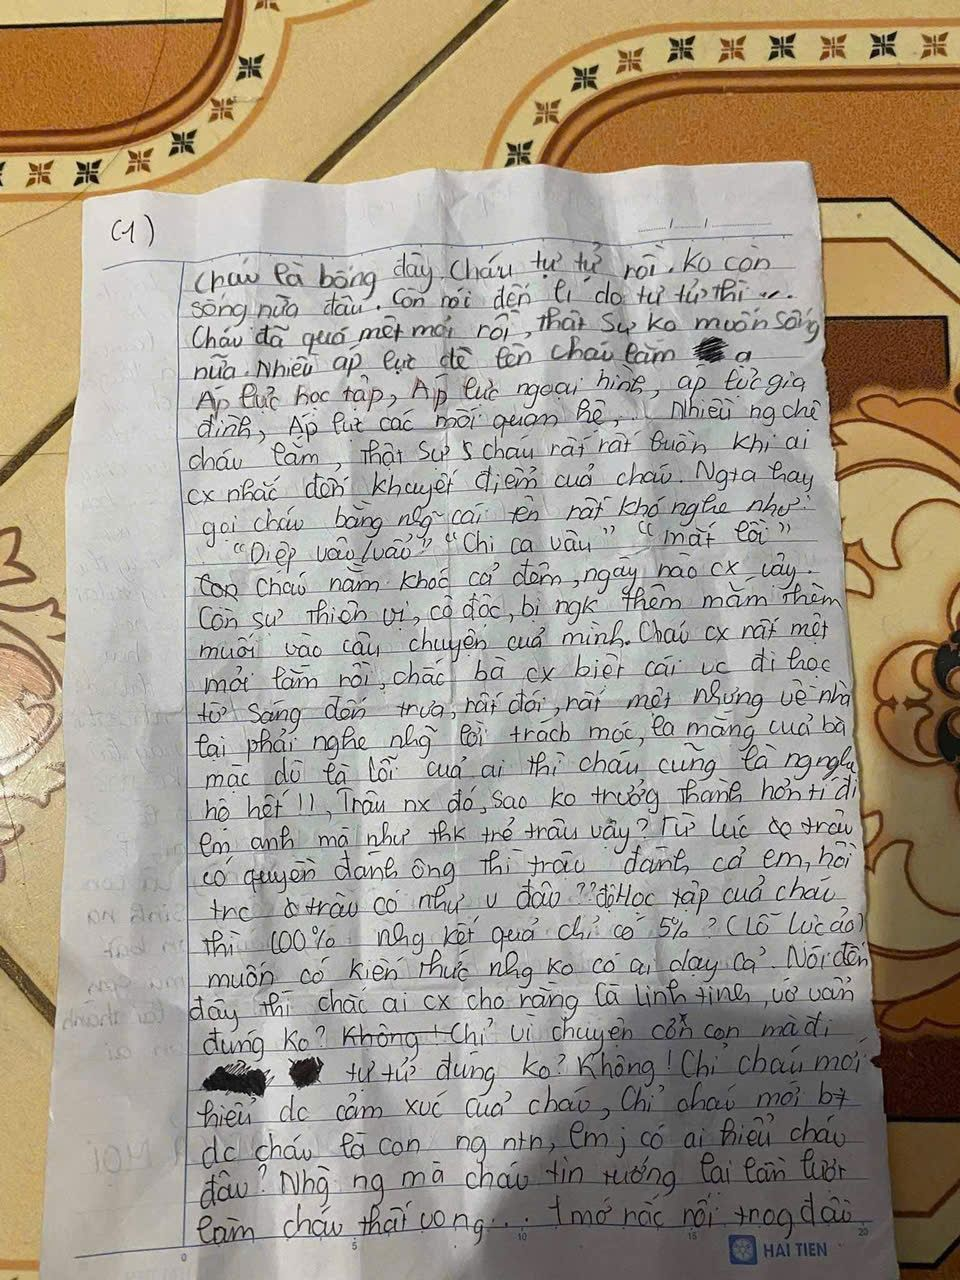 (1)
Cháu là bống đây cháu tự tử rồi. Ko còn
sống nữa đâu. Còn nói đến lí do tự tử thì ...
Cháu đã quá mệt mỏi rồi, thật sự ko muốn sống
nữa. Nhiều áp lực đè lên cháu lắm ạ
Áp lực học tập, Áp lực ngoại hình, áp lực gia
đình, Áp lực các mối quan hệ, ... Nhiều ng chê
cháu lắm, thật sự cháu rất rất buồn khi ai
cx nhắc đến khuyết điểm của cháu. Ngta hay
gọi cháu bằng nhg cái tên rất khó nghe như:
"Diệp vẩo/vảo" "Chi ca vẩu" "mắt lồi"
cháu nằm khóc cả đêm, ngày nào cx vậy.
Còn sự thiên vị, cô độc, bị ngk thêm mắm thêm
muối vào câu chuyện của mình. Cháu cx rất mệt
mỏi lắm rồi, chắc bà cx biệt cái vc đi học
từ sáng đến trưa, rất đói, rất mệt nhưng về nhà
lại phải nghe nhg lời trách móc, la mắng của bà
mặc dù là lỗi của ai thì cháu cũng là ng nghe
hộ hết!!, Trâu nx đó, sao ko trưởng thành hơn tí đi
em anh mà như thk trẻ trâu vậy? Từ lúc trâu
có quyền đánh ông thì trâu đánh cả em, hồi
trc trâu có như v đâu?? Học tập của cháu
thì 100% nhg kết quả chỉ có 5%? (Lỗ lực ảo)
muốn có kiến thức nhg ko có ai dạy cả. Nói đến
đây thì chắc ai cx cho rằng là linh tinh, vớ vẩn
đúng ko? Không! Chỉ vì chuyện cỏn con mà đi
tự tử đúng ko? Không! Chỉ cháu mới
hiểu dc cảm xúc của cháu, Chỉ cháu mới bt
dc cháu là con ng ntn, em j có ai hiểu cháu
đâu? Nhg ng mà cháu tin tưởng lại lần lượt
làm cháu thất vọng... 1 mớ rắc rối trog đầu
0 5 10 15 20
HAI TIEN